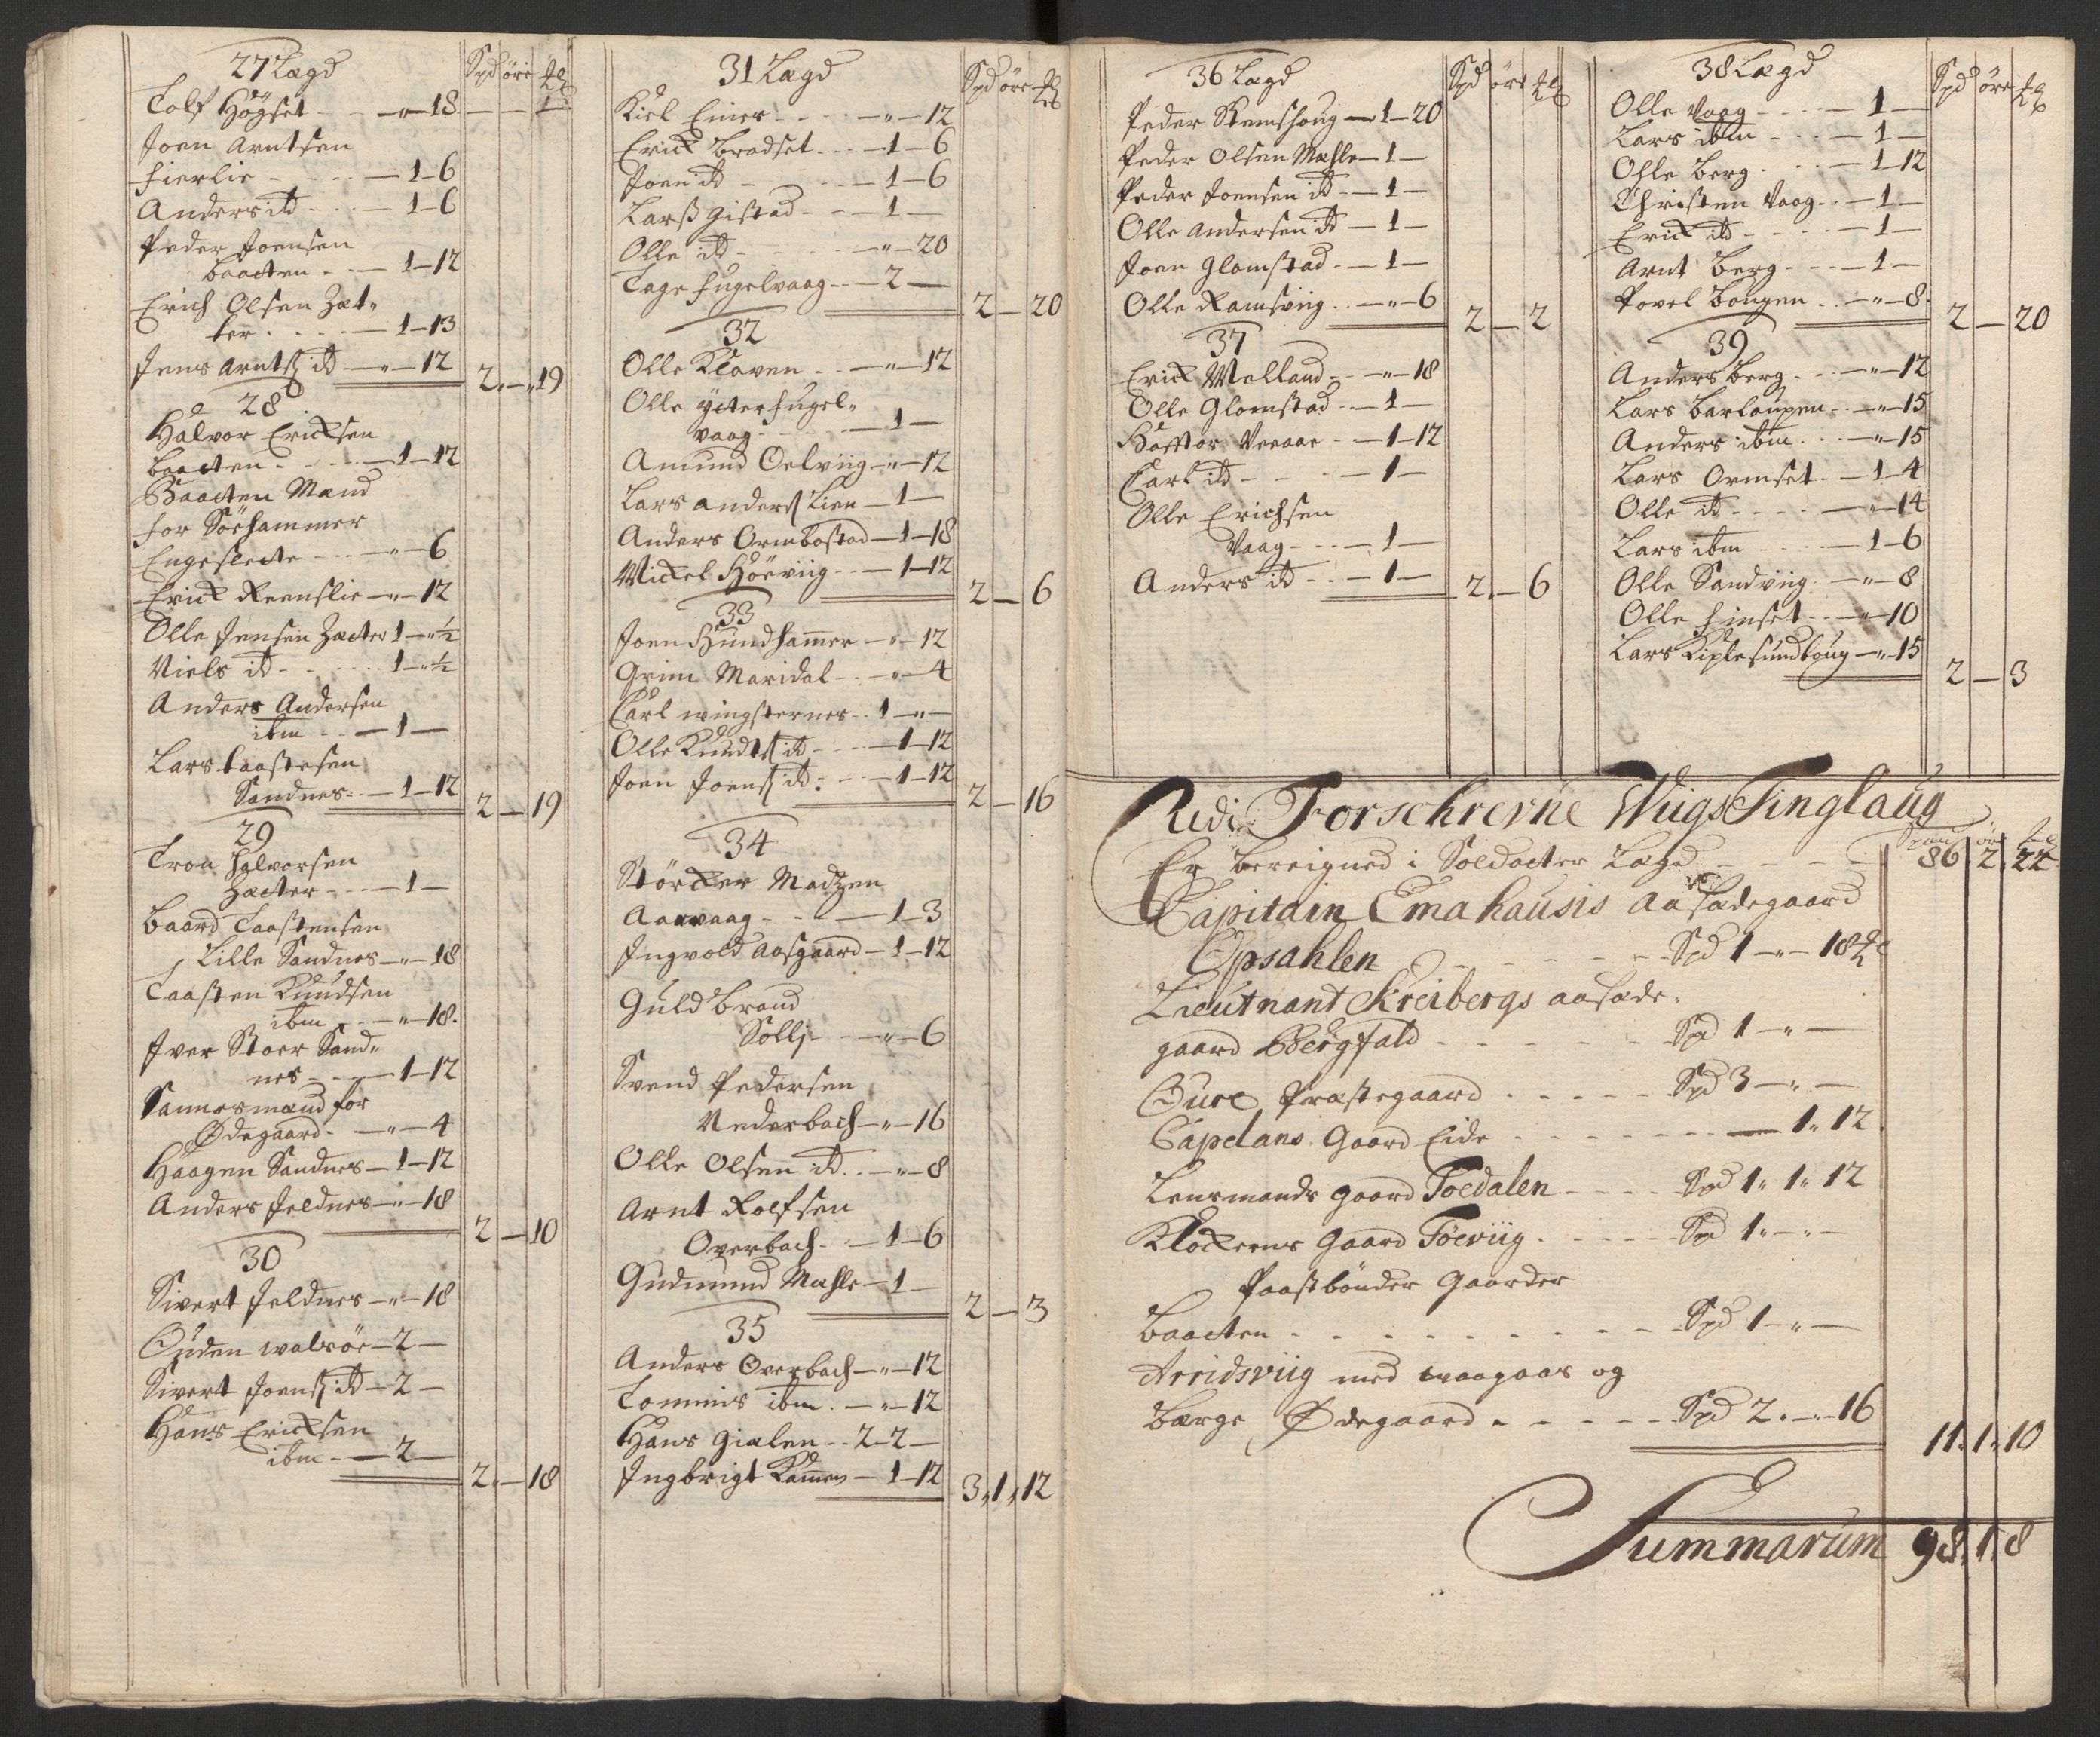 27 Lægd Spd öre
Tolf Högset - - „ - 18 - - 1
Joen Arntsen
Fierlie - - - 1 - 6
Anders itd - - 1 - 6
Peder Joensen
baacten - - 1 - 12
Erich Olsen Zæt„
ter - - - 1 - 13
Jens Arntsß itd - „ - 12 2. - „ 19
28
Halvor Ericksen
baacten - - - 1 - 12
Baacten Mænd
for Sörhammer
Engeslette - - - „ - 6
Erick Reenslie - „ - 12
Olle Jensen Zæcter 1 - „ ½
Niels itd - - - 1 - „ ½
Anders Andersen
ibm - - 1 -
Lars taastesen
Sandnes - - 1 - 12 2 - 19
29
Tron Halvorsen
Zæcter - - - 1 -
Baard Taastensen
Lille Sandnes - „ - 18
Taasten Knudsen
ibm - - „ - 18.
Iver Stoer Sand„
nes - - - 1 - 12
Sannesmænd for
Ødegaard - - „ - 4
Haagen Sandnes - 1 - 12
Anders Jeldnes - „ - 18 2 - 10
30
Sivert Jeldnes - „ - 18
Ouden walsöe - 2 -
Sivert Joensß itd - 2 -
Hans Ericksen
ibm - - 2 - 2. - 18
31 Lægd Spd öre
Kiel Eines - - - „ - 12
Erick Bradset - - - 1 - 6
Joen itd - - - 1 - 6
Larß Gistad - - - 1 -
Olle itd - - - „ - 20
Tage Fugelvaag - - 2 - 2 - 20
32
Olle Kloven - - - „ - 12
Olle ÿtterfugel„
vaag - - - 1 -
Amund Oelviig - „ - 12
Lars Andersß Lien - 1 -
Anders Ormbostad - 1 - 18
Mickel Höeviig - - 1 - 12 2 - 6
33
Joen Hundhammer - „ - 12
Grim Maridal - - „ - 4
Carl wingsternes - - 1 - „ -
Olle Knudtsß itd - - - 1 - 12
Joen Joensß itd - - - 1 - 12 2 - 16
34
Störcker Madtzen
Aarvaag - - - 1 - 3
Ingvold Aasgaard - 1 - 12
Guldbrand
Sollj - - „ - 6
Svend Pedersen
Nederbach - „ - 16
Olle Olsen itd - - „ - 8
Arnt Rolfsen
Overbach - - 1 - 6
Gudmund Mæhle - 1 - 2 - 3
35
Anders Overbach - „ - 12
Tommis ibm - - „ - 12
Hans Gialen - - 2 - 2 -
Ingbrigt Kamen - 1 - 12 3„ 1„ 12
36 Lægd Spd öre
Peder Stemshoug - 1 - 20
Peder Olsen Mæhle - 1 -
Peder Joensen itd - - 1 -
Olle Andersen itd - 1 -
Joen Glomstad - - 1 -
Olle Ramsviig - - „ - 6 2 - 2
37
Erick Melland - - „ - 18
Olle Glomstad - - 1 -
Haffor Veraae - - 1 - 12
Carl itd - - - 1 -
Olle Erichsen
Vaag - - - 1 -
Anders itd - - 1 - 2. - 6
38 Lægd Spd öre
Olle Vaag - - - 1 -
Lars ibm - - - 1 -
Ohle Berg - - - 1 - 12
Christen Vaag - - 1 -
Erick itd - - - 1 -
Arnt Berg - - - 1 -
Povel Bongen - - „ - 8. 2 - 20
39
Anders Berg - - - „ - 12
Lars Barloupen - - „ - 15
Anders ibm - - - „ - 15
Lars Ormset - - 1 - 4
Olle itd - - - „ - 14
Lars ibm - - - 1 - 6
Olle Sandviig - - „ - 8
Olle Finset - - „ - 10
Lars Kiplesundboug - „ - 15 2 - 3
Udi Forschrevne Wiigs Tinglaug
Er bereigned i Soldacter Lægd - - - 86. 2. 22
Capitain Emahausis Aasædegaard
Opsahlen - - - - - Spd 1 - „ - 18
Lieutnant Kreibergs aasæde-
gaard Bergfald - - - - - Spd 1 - „ -
Oure Præstegaard - - - - - Spd 3 - „ -
Capelans Gaard Eide - - - - - 1„ 12
Lensmands Gaard Toedalen - - - Spd 1„ 1„ 12
Klockerens Gaard Töeviig - - - Spd 1„ - „ -
Paastbönder Gaarder
Baacten - - - - - Spd 1 - „ -
Arridsviig med waagaas og
Bærge Ødegaard - - - - - Spd 2. - „ - 16 11„ 1„ 10
Summarum 98. 1. 8